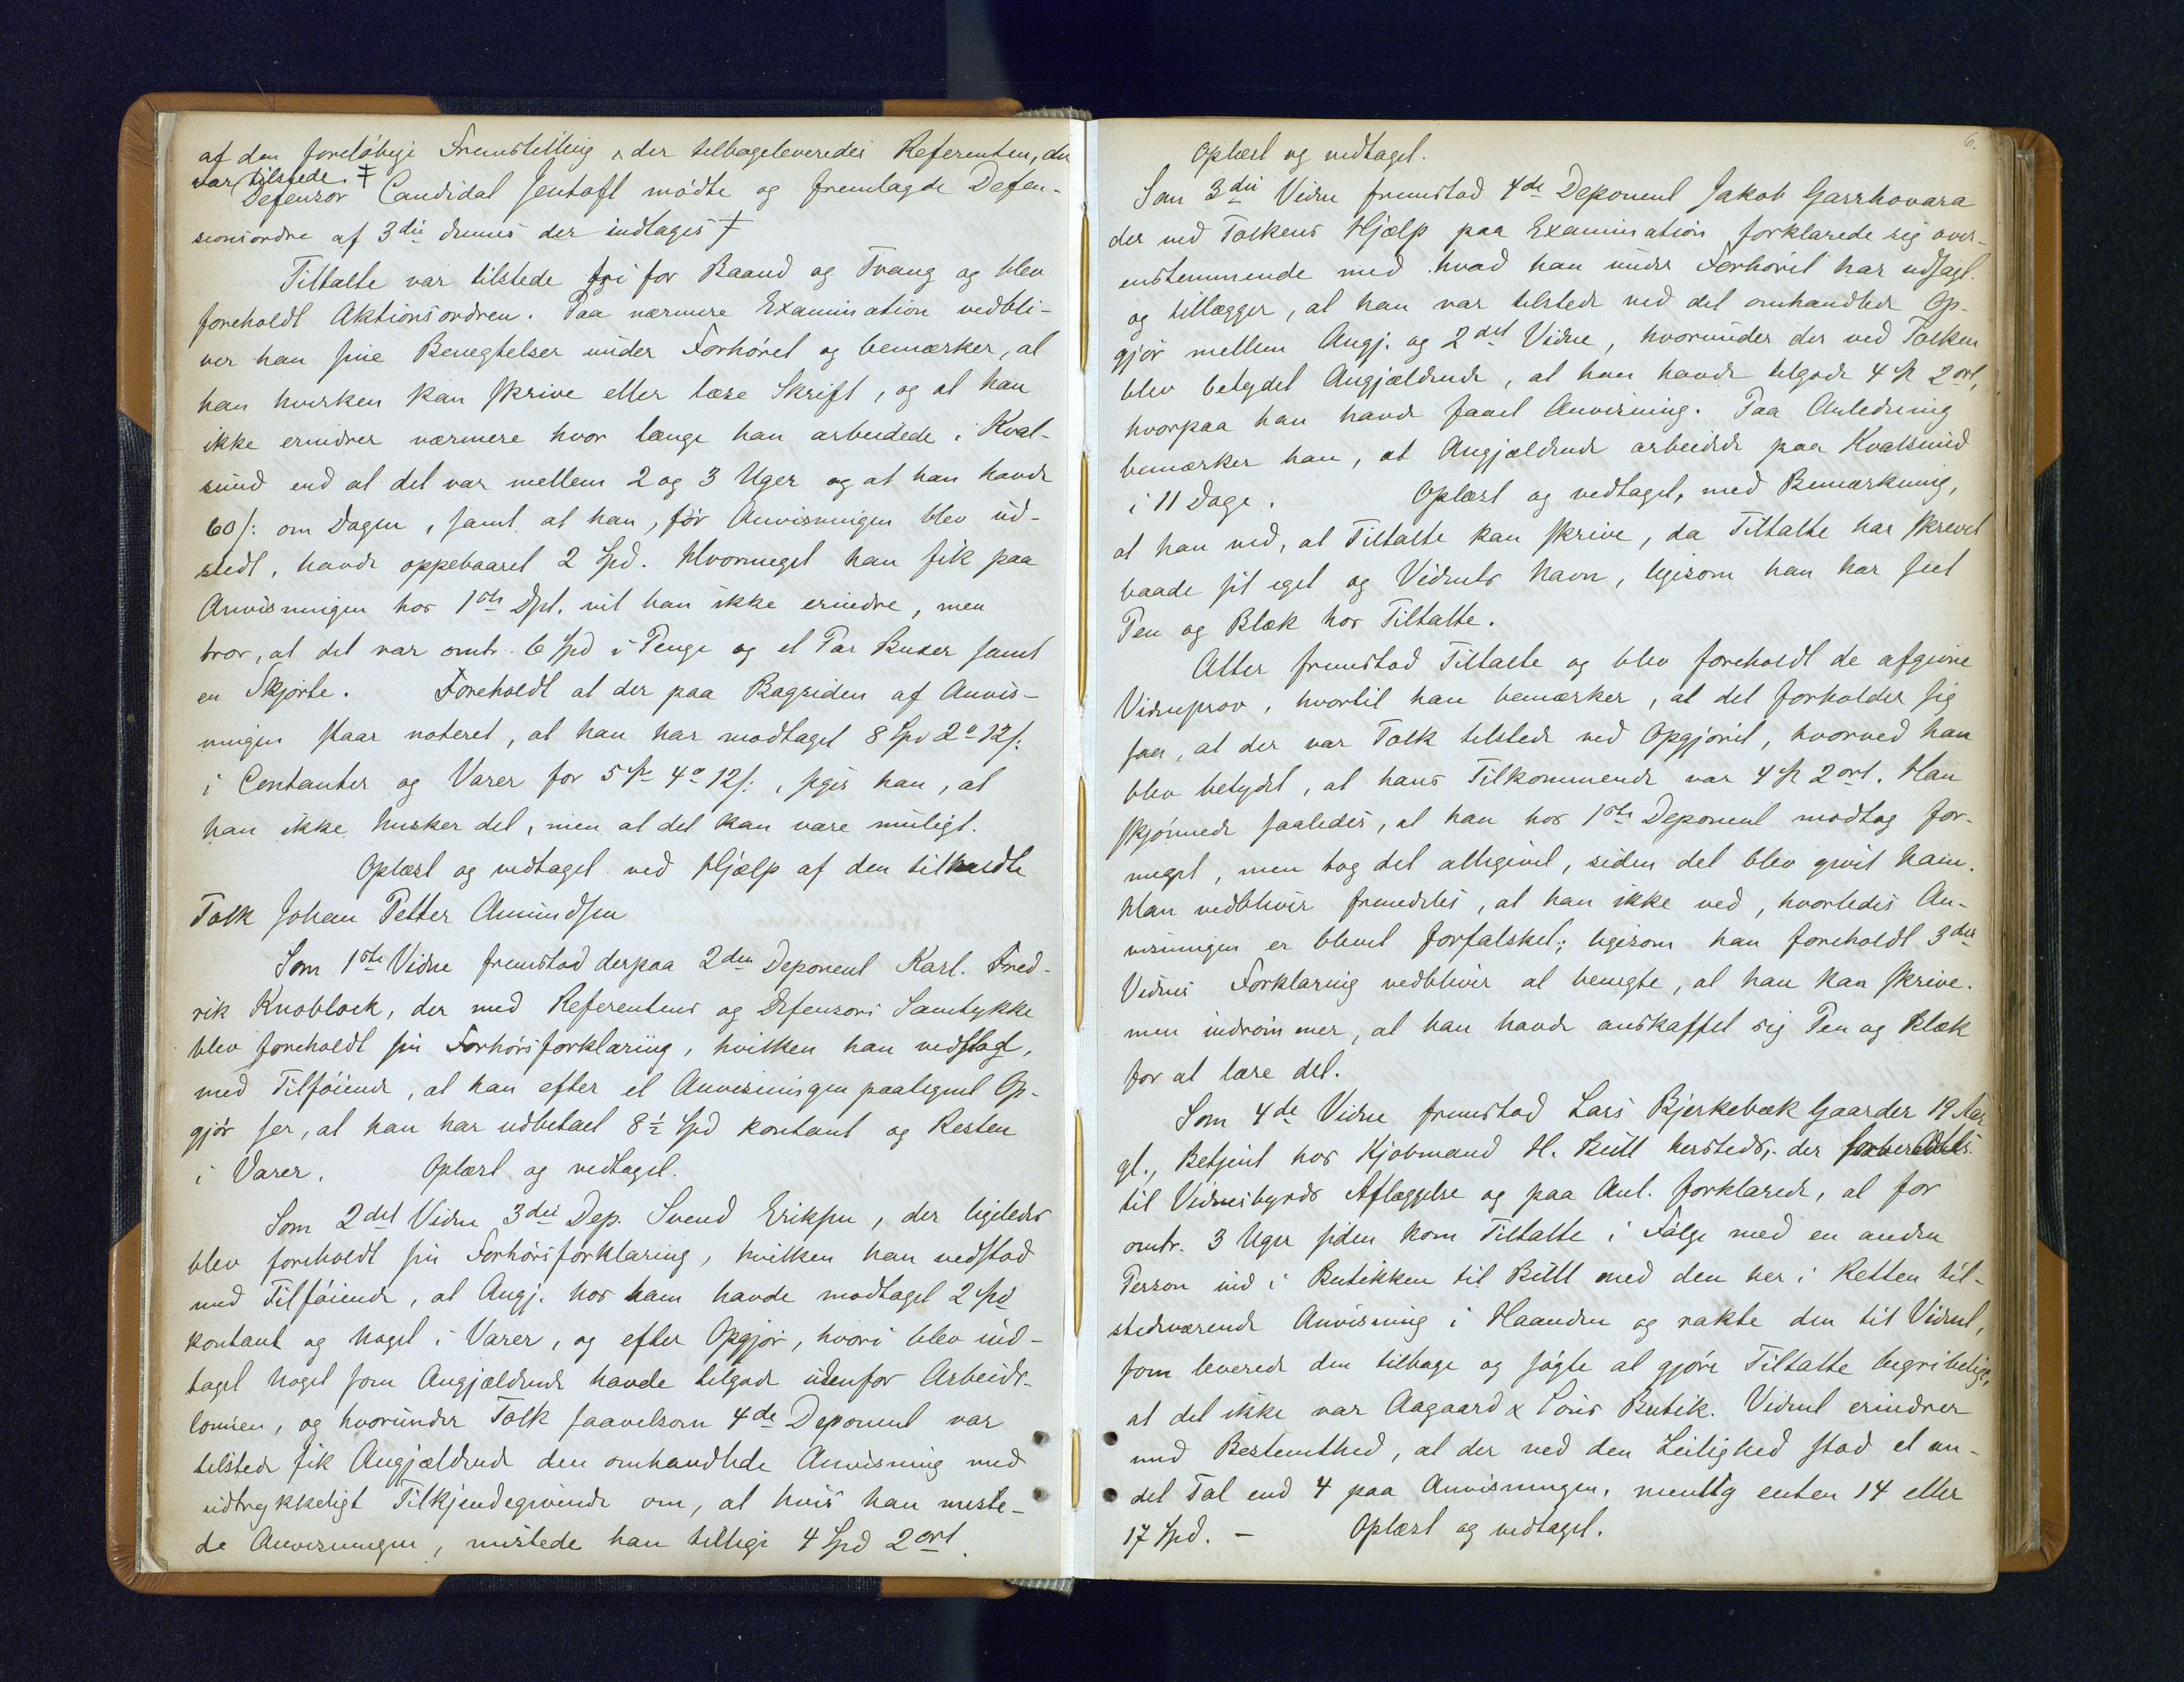 af den foreløbige Fremstilling, der tilbageleveredes Referenten, der
var tilstede. ‡
Defensor Candidat Jentoft mødte og fremlagde Defen-
sionsordre af 3die dennes der indtages ‡
Tiltalte var tilstede fri for Baand og Tvang og blev
foreholdt Aktionsordren. Paa nærmere Examination vedbli-
ver han sine Benegtelser under Forhøret og bemærker, at
han hverken kan skrive eller læse Skrift, og at han
ikke erindrer nærmere hvor længe han arbeidede i Kval-
sund end at det var mellem 2 og 3 Uger og at han havde
60 /: om Dagen, samt at han, før Anvisningen blev ud-
stedt, havde oppebaaret 2 Spd. Hvormeget han fik paa
Anvisningen hos 1ste Dpt. vil han ikke erindre, men
tror, at det var omtr. 6 Spd i Penge og et Par Buxer samt
en Skjorte. Foreholdt at der paa Bagsiden af Anvis-
ningen staar noteret, at han har modtaget 8 Spd 2o 12 /:
i Contanter og Varer for 5 Sp 4o 12 /:, siges han, at
han ikke husker det, men at det kan være muligt.
Oplæst og vedtaget ved Hjælp af den tilkaldte
Tolk Johan Petter Amundsen
Som 1ste Vidne fremstod derpaa 2den Deponent Karl. Fred-
rik Knoblock, der med Referentens og Defensors Samtykke
blev foreholdt sin Forhørsforklaring, hvilken han vedtog,
med Tilføiende, at han efter et Anvisningen paategnet Op-
gjør ser, at han har udbetalt 8 1/2 Spd kontant og Resten
i Varer. Oplæst og vedtaget.
Som 2det Vidne 3die Dep. Svend Eriksen, der ligeledes
blev foreholdt sin Forhørsforklaring, hvilken han vedstod
med Tilføiende, at Angj. hos ham havde modtaget 2 Spd
kontant og Noget i Varer, og efter Opgjør, hvori blev ind-
taget Noget som Angjældende havde tilgode udenfor Arbeids-
lønnen, og hvorunder Tolk saavelsom 4de Deponent var
tilstede fik Angjældende den omhandlede Anvisning med
udtrykkeligt Tilkjendegivende om, at hvis han miste-
de Anvisningen, mistede han tillige 4 Spd 2 ort.
6.
Oplæst og vedtaget.
Som 3die Vidne fremstod 4de Deponent Jakob Garrhovara
der med Tolkens Hjælp paa Examination forklarede sig over-
ensstemmende med hvad han under Forhøret har udsagt.
og tillægger, at han var tilstede ved det omhandlede Op-
gjør mellem Angj. og 2det Vidne, hvorunder der ved Tolken
blev betydet Angjældende, at han havde tilgode 4 Sp 2 ort,
hvorpaa han havde faaet Anvisning. Paa Anledning
bemærker han, at Angjældende arbeidede paa Kvalsund
i 11 Dage. Oplæst og vedtaget, med Bemærkning,
at han ved, at Tiltalte kan skrive, da Tiltalte har skrevet
baade sit eget og Vidnets Navn, ligesom han har seet
Pen og Blæk hos Tiltalte.
Atter fremstod Tiltalte og blev foreholdt de afgivne
Vidneprov, hvortil han bemærker, at det forholder sig
saa, at der var Tolk tilstede ved Opgjøret, hvorved han
blev betydet, at hans Tilkommende var 4 Sp 2 ort. Han
skjønnede saaledes, at han hos 1ste Deponent modtog for-
meget, men tog det alligevel, siden det blev givet ham.
Han vedbliver fremdeles, at han ikke ved, hvorledes An-
visningen er blevet forfalsket; ligesom han foreholdt 3die
Vidnes Forklaring vedbliver at benegte, at han kan skrive.
men indrømmer, at han havde anskaffet sig Pen og Blæk
for at lære det.
Som 4de Vidne fremstod Lars Bjerkebæk Gaarder 19 Aar
gl., Betjent hos Kjøbmand H. Bull hersteds, der forberedtes
til Vidnesbyrds Aflæggelse og paa Anl. forklarede, at for
omtr. 3 Uger siden kom Tiltalte i Følge med en anden
Person ind i Butikken til Bull med den her i Retten til-
stedeværende Anvisning i Haanden og rakte den til Vidnet,
som leverede den tilbage og søgte at gjøre Tiltalte begribeligt,
at det ikke var Aagaard & Søns Butik. Vidnet erindrer
med Bestemthed, at der ved den Leilighed stod et an-
det Tal end 4 paa Anvisningen, nemlig enten 14 eller
17 Spd. – Oplæst og vedtaget.